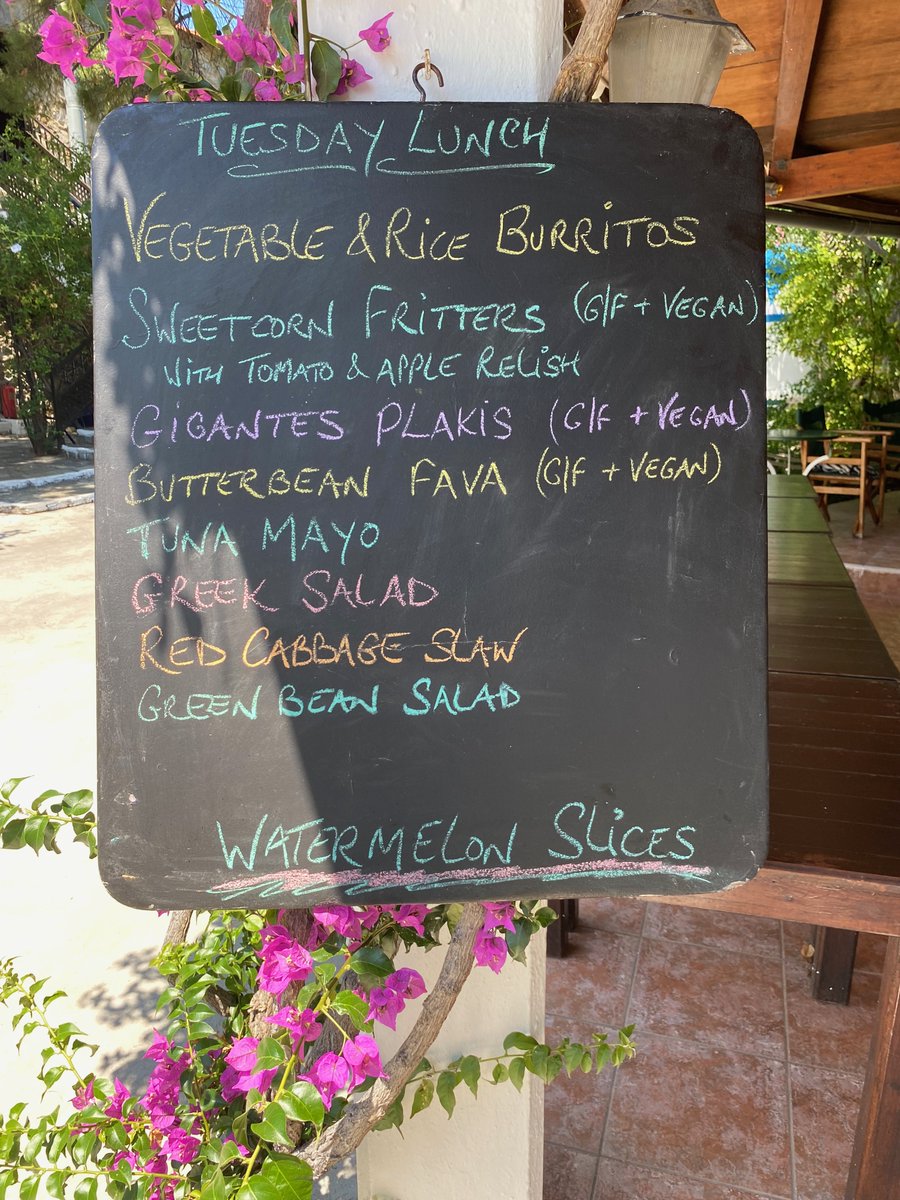 TUESDAY LUNCH
VEGETABLE & RICE BURRITOS
SWEETCORN FRITTERS (G/F + VEGAN)
WITH TOMATO & APPLE RELISH
GIGANTES PLAKIS (G/F + VEGAN)
BUTTERBEAN FAVA (G/F + VEGAN)
TUNA MAYO
GREEK SALAD
RED CABBAGE SLAW
GREEN BEAN SALAD
WATERMELON SLICES